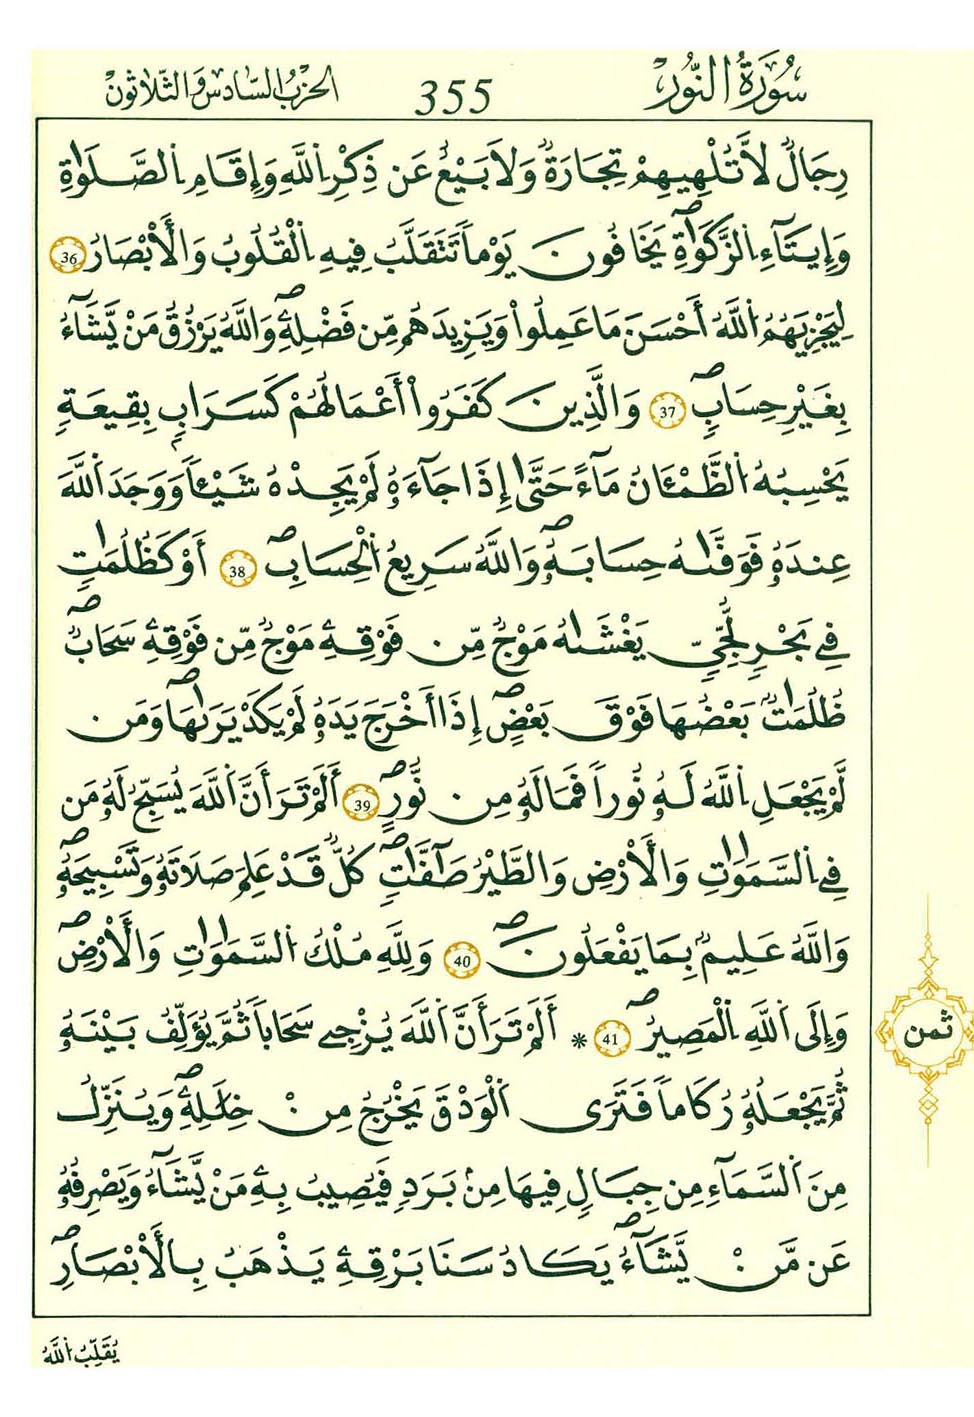 سُورَةُ النُّورِ
355
الحِزْبُ السَّادِسُ وَالثَّلَاثُونَ
رِجَالٌ لَّا تُلْهِيهِمْ تِجَٰرَةٌ وَلَا بَيْعٌ عَن ذِكْرِ اِ۬للَّهِ وَإِقَامِ اِ۬لصَّلَوٰةِ
وَإِيتَآءِ اِ۬لزَّكَوٰةِ يَخَافُونَ يَوْماً تَتَقَلَّبُ فِيهِ اِ۬لْقُلُوبُ وَالْأَبْصَٰرُ 36
لِيَجْزِيَهُمُ اُ۬للَّهُ أَحْسَنَ مَا عَمِلُواْ وَيَزِيدَهُم مِّن فَضْلِهِۦ وَاللَّهُ يَرْزُقُ مَنْ يَّشَآءُ
بِغَيْرِ حِسَابٍ 37 وَالَّذِينَ كَفَرُواْ أَعْمَالُهُمْ كَسَرَابٍ بِقِيعَةٍ
يَحْسِبُهُ اُ۬لظَّمْـَٔانُ مَآءً حَتَّىٰ إِذَا جَآءَهُۥ لَمْ يَجِدْهُ شَيْـٔاً وَوَجَدَ اَ۬للَّهَ
عِندَهُۥ فَوَفَّىٰهُ حِسَابَهُۥ وَاللَّهُ سَرِيعُ اُ۬لْحِسَابِ 38 أَوْ كَظُلُمَٰتٍ
فِے بَحْرٍ لُّجِّيٍّ يَغْشَىٰهُ مَوْجٌ مِّن فَوْقِهِۦ مَوْجٌ مِّن فَوْقِهِۦ سَحَابٌ
ظُلُمَٰتٌ بَعْضُهَا فَوْقَ بَعْضٍ إِذَا أَخْرَجَ يَدَهُۥ لَمْ يَكَدْ يَرَىٰهَا وَمَن
لَّمْ يَجْعَلِ اِ۬للَّهُ لَهُۥ نُوراً فَمَا لَهُۥ مِن نُّورٍ 39 أَلَمْ تَرَ أَنَّ اَ۬للَّهَ يُسَبِّحُ لَهُۥ مَن
فِے اِ۬لسَّمَٰوَٰتِ وَالْأَرْضِ وَالطَّيْرُ صَآفَّٰتٍ كُلٌّ قَدْ عَلِمَ صَلَاتَهُۥ وَتَسْبِيحَهُۥ
وَاللَّهُ عَلِيمٌ بِمَا يَفْعَلُونَ 40 وَلِلَّهِ مُلْكُ اُ۬لسَّمَٰوَٰتِ وَالْأَرْضِ
وَإِلَى اَ۬للَّهِ اِ۬لْمَصِيرُ 41 * أَلَمْ تَرَ أَنَّ اَ۬للَّهَ يُزْجِے سَحَاباً ثُمَّ يُؤَلِّفُ بَيْنَهُۥ
ثمن
ثُمَّ يَجْعَلُهُۥ رُكَاماً فَتَرَى اَ۬لْوَدْقَ يَخْرُجُ مِنْ خِلَٰلِهِۦ وَيُنَزِّلُ
مِنَ اَ۬لسَّمَآءِ مِن جِبَالٍ فِيهَا مِنۢ بَرَدٍ فَيُصِيبُ بِهِۦ مَنْ يَّشَآءُ وَيَصْرِفُهُۥ
عَن مَّنْ يَّشَآءُ يَكَادُ سَنَا بَرْقِهِۦ يَذْهَبُ بِالْأَبْصَٰرِ
يُقَلِّبُ اُ۬للَّهُ